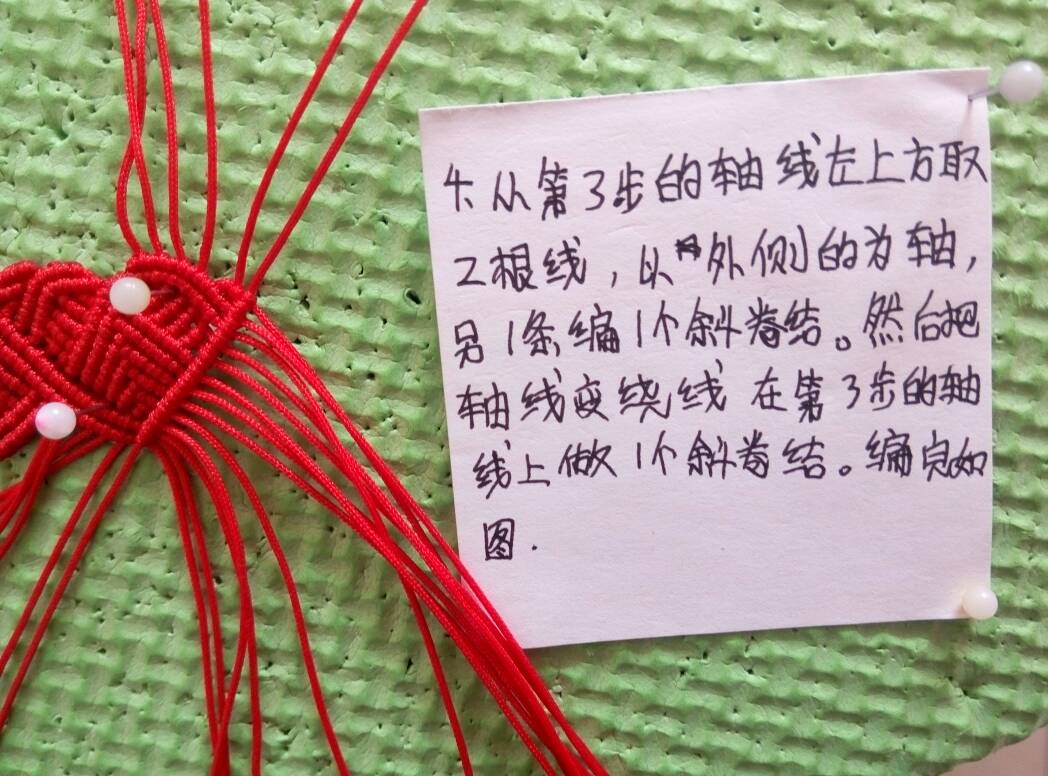 4. 从第3步的轴线左上方取
2根线，以外侧的为轴，
另1条编1个斜卷结。然后把
轴线变绕线 在第3步的轴
线上做1个斜卷结。编完如
图.